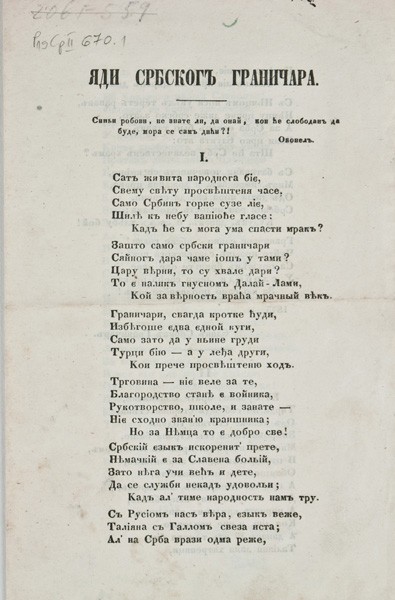 РꙊСрII 670.1
ЯДИ СРБСКОГЪ ГРАНИЧАРА.
Сањи робови, не знате ли, да онай, кои ће слободанъ да
буде, мора се самъ дићи?!
Оконелъ.
I.
Сатъ живита народнога біє,
Свему свѣту просвѣштеня часе,
Само Србинъ горке сузе ліє,
Шилѣ къ небу вапіюће гласе:
Кадъ ће съ мога ума спасти мракъ?
Зашто само србски граничари
Сяйногъ дара чаме іошъ у тами?
Цару вѣрни, то су хвале дари?
То є валякъ гнусномъ Далай-Лами,
Кой за вѣрность враћа мрачный вѣкъ.
Граничари, свагда кротке ћуди,
Избѣгоше єдва єдной куги,
Само зато да у ньине груди
Турци бію — а у леђа други,
Кои прече просвѣштенію ходъ.
Трговина — ніє веле за те,
Благородство станѣ є войника,
Рукотворство, школе, и занате —
Ніє сходно званѣю краишника;
Но за Нѣмца то є добро све!
Србскій єзыкъ искоренит' прете,
Нѣмачкій є за Славена больій,
Зато нѣга учи већъ и дете,
Да се служби некадъ удовольи;
Кадъ ал' тиме народность намъ тру.
Съ Русіомъ насъ вѣра, єзыкъ веже,
Таліяна съ Галломъ свеза иста;
Ал' на Срба врази одма реже,